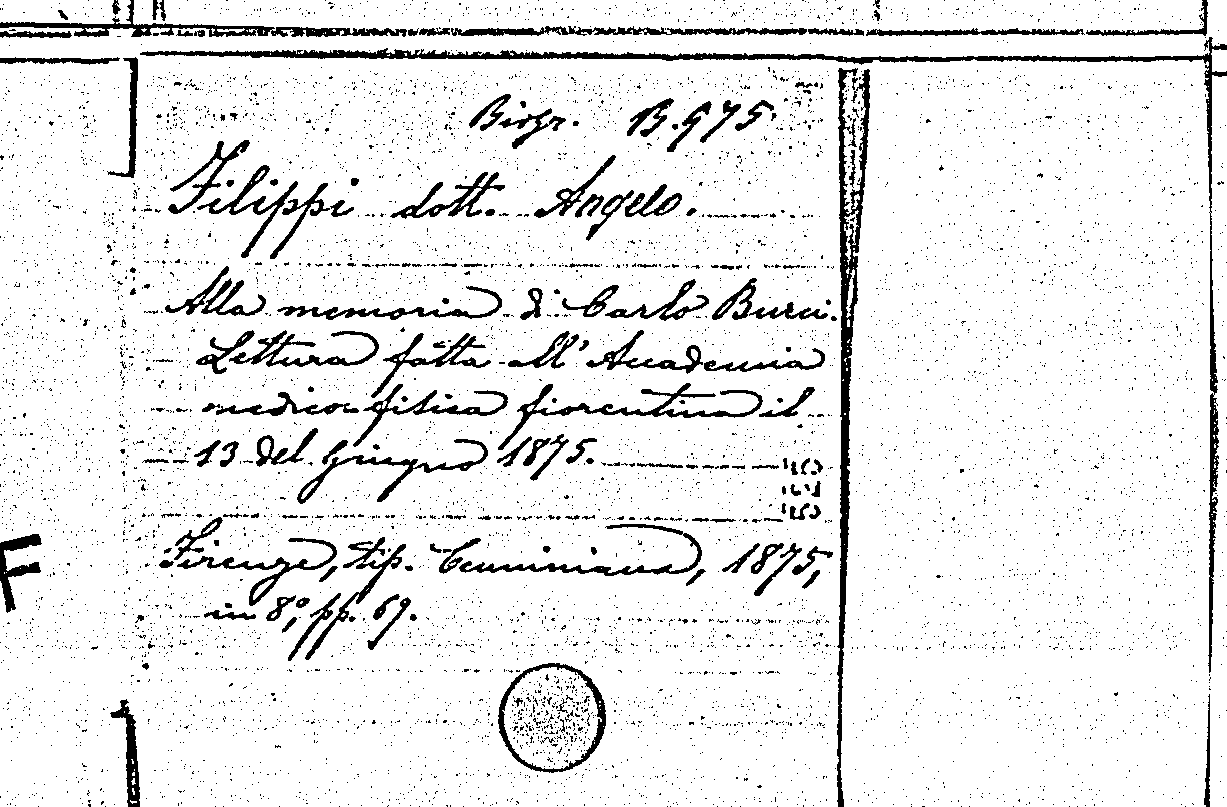 Biogr. B.975
Filippi dott. Angelo.
Alla memoria di Carlo Burci.
Lettura fatta all'Accademia
medico-fisica fiorentina il
13 del Giugno 1875.
Firenze, tip. Cenniniana, 1875,
in 8°, pp. 69.
F